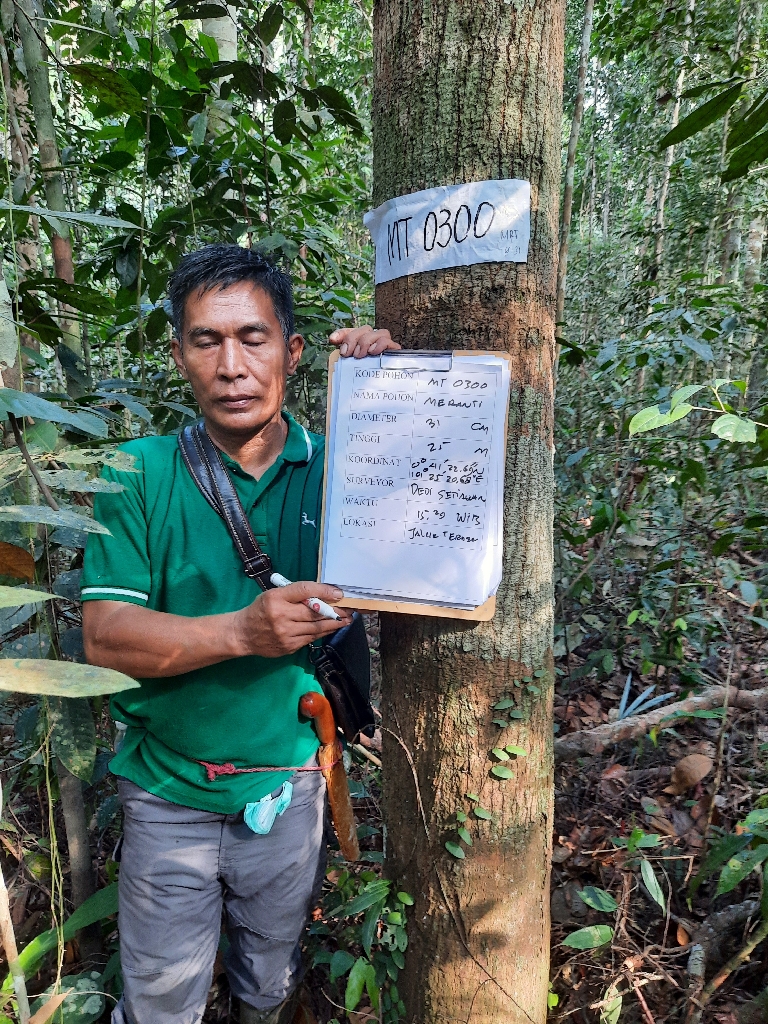 MT 0300
MRT
KODE POHON MT 0300
NAMA POHON MERANTI
DIAMETER 31 CM
TINGGI 25 M
KOORDINAT 0° 41' 22.66" N
101° 25' 20.68" E
SURVEYOR DEDI SETIAWAN
WAKTU 15.20 WIB
LOKASI JALUR